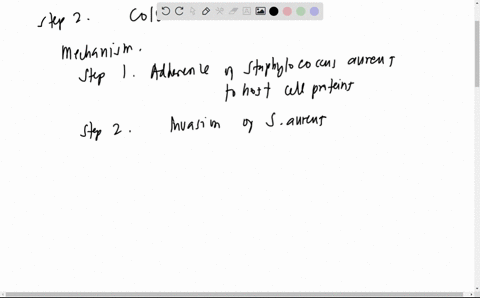 step 2. Col
Mechanism.
Step 1. Adherence of Staphylococcus aureus
to host cell proteins
Step 2. Invasion of S. aureus